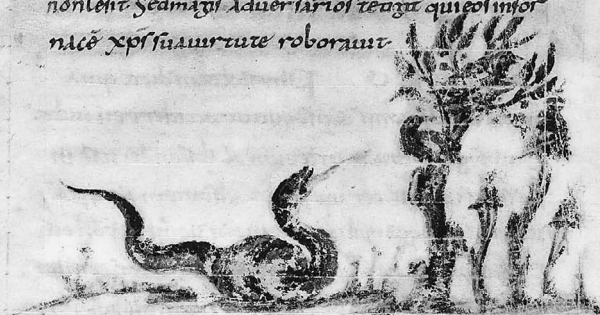 nonlesit sedmagis adversarios tetigit quieos infor
nacē xp̄s suavirtute roboravit